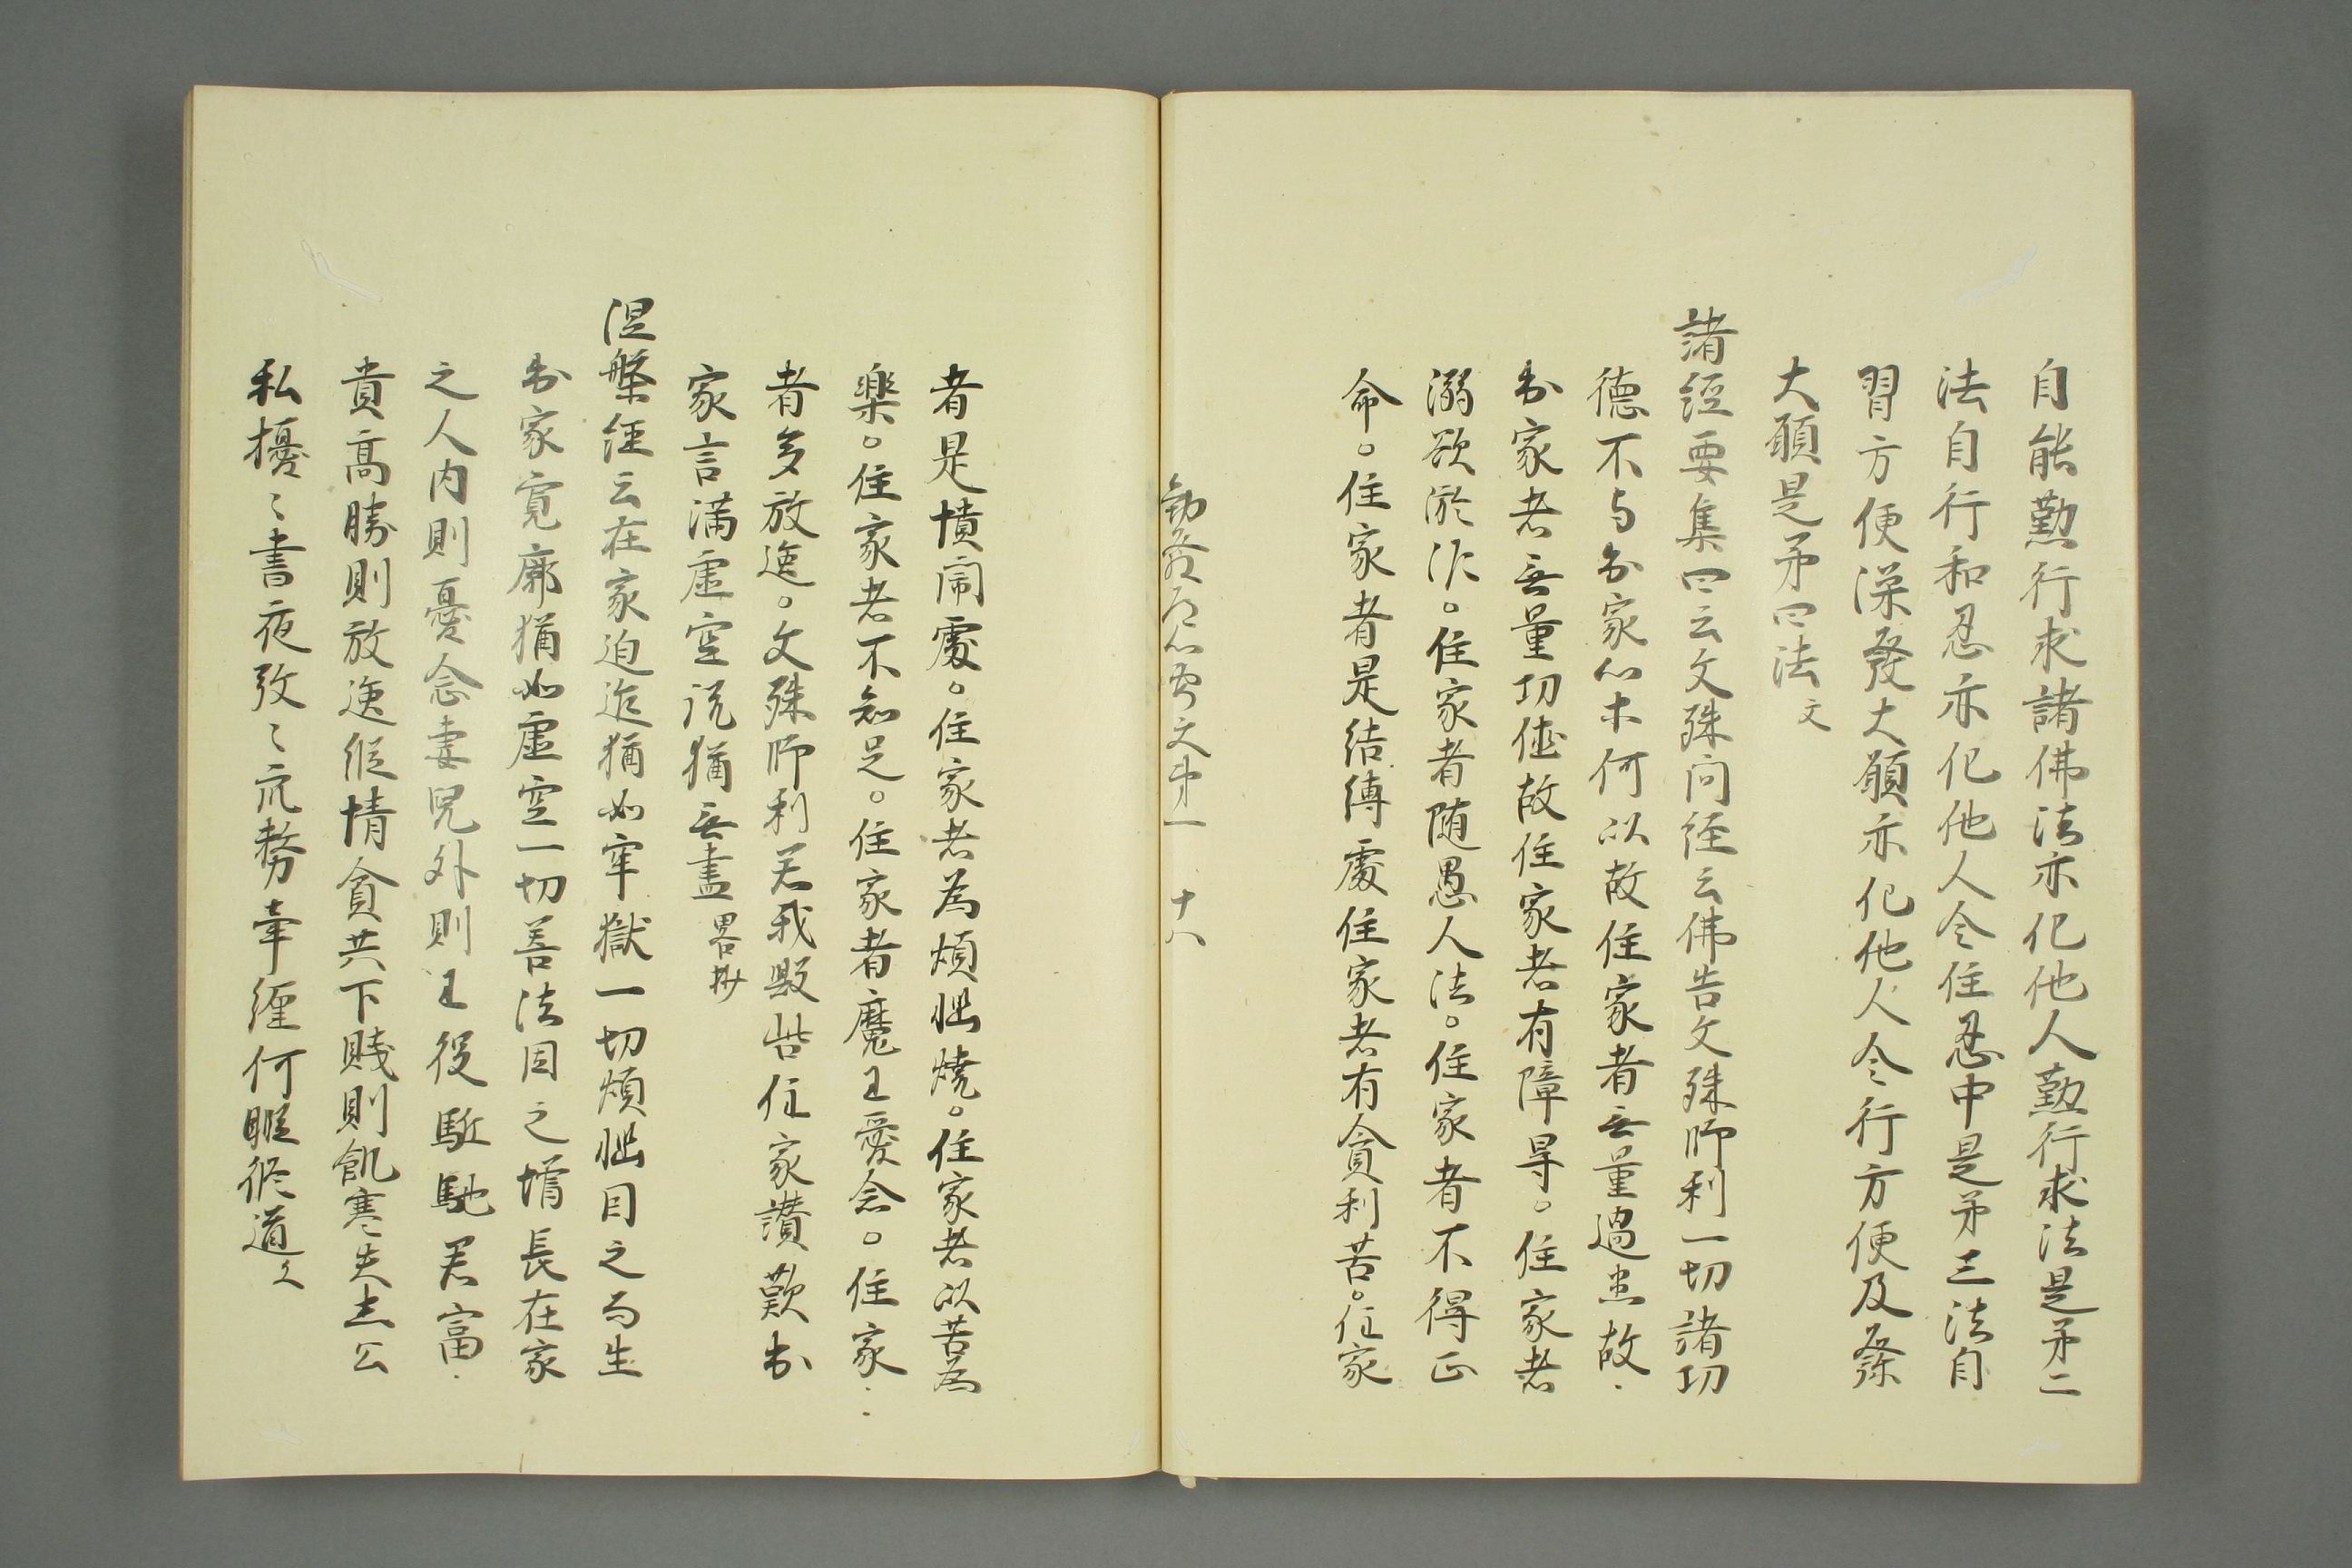 自能勤行求諸佛法亦化他人勤行求法是苐二
法自行和忍亦化他人令住忍中是苐三法自
習方便深發大願亦化他人令行方便及發
大願是苐四法文
諸經要集四云文殊问経云佛告文殊師利一切諸功
徳不与出家心木何以故住家者无量過患故
出家者无量功徳故住家者有障㝵。住家者
溺欲淤泥。住家者随愚人法。住家者不得正
命。住家者是结縛處住家者有貪利苦。住家
文苐一 十八
者是憒閙處。住家者為煩惱燒。住家者以苦為
楽。住家者不知足。住家者魔王愛念。住家
者多放逸。文殊师利若我毀呰住家讃歎出
家言満虚空说猶无盡畧抄
涅槃経云在家迫迮猶如牢獄一切煩惱因之而生
出家寛廓猶如虚空一切善法因之増長在家
之人内則憂念妻児外則王役駈馳若富
貴髙勝則放逸縦情貪共下賤則飢寒失志公
私擾〻書夜孜〻 務牽纒何暇修道文